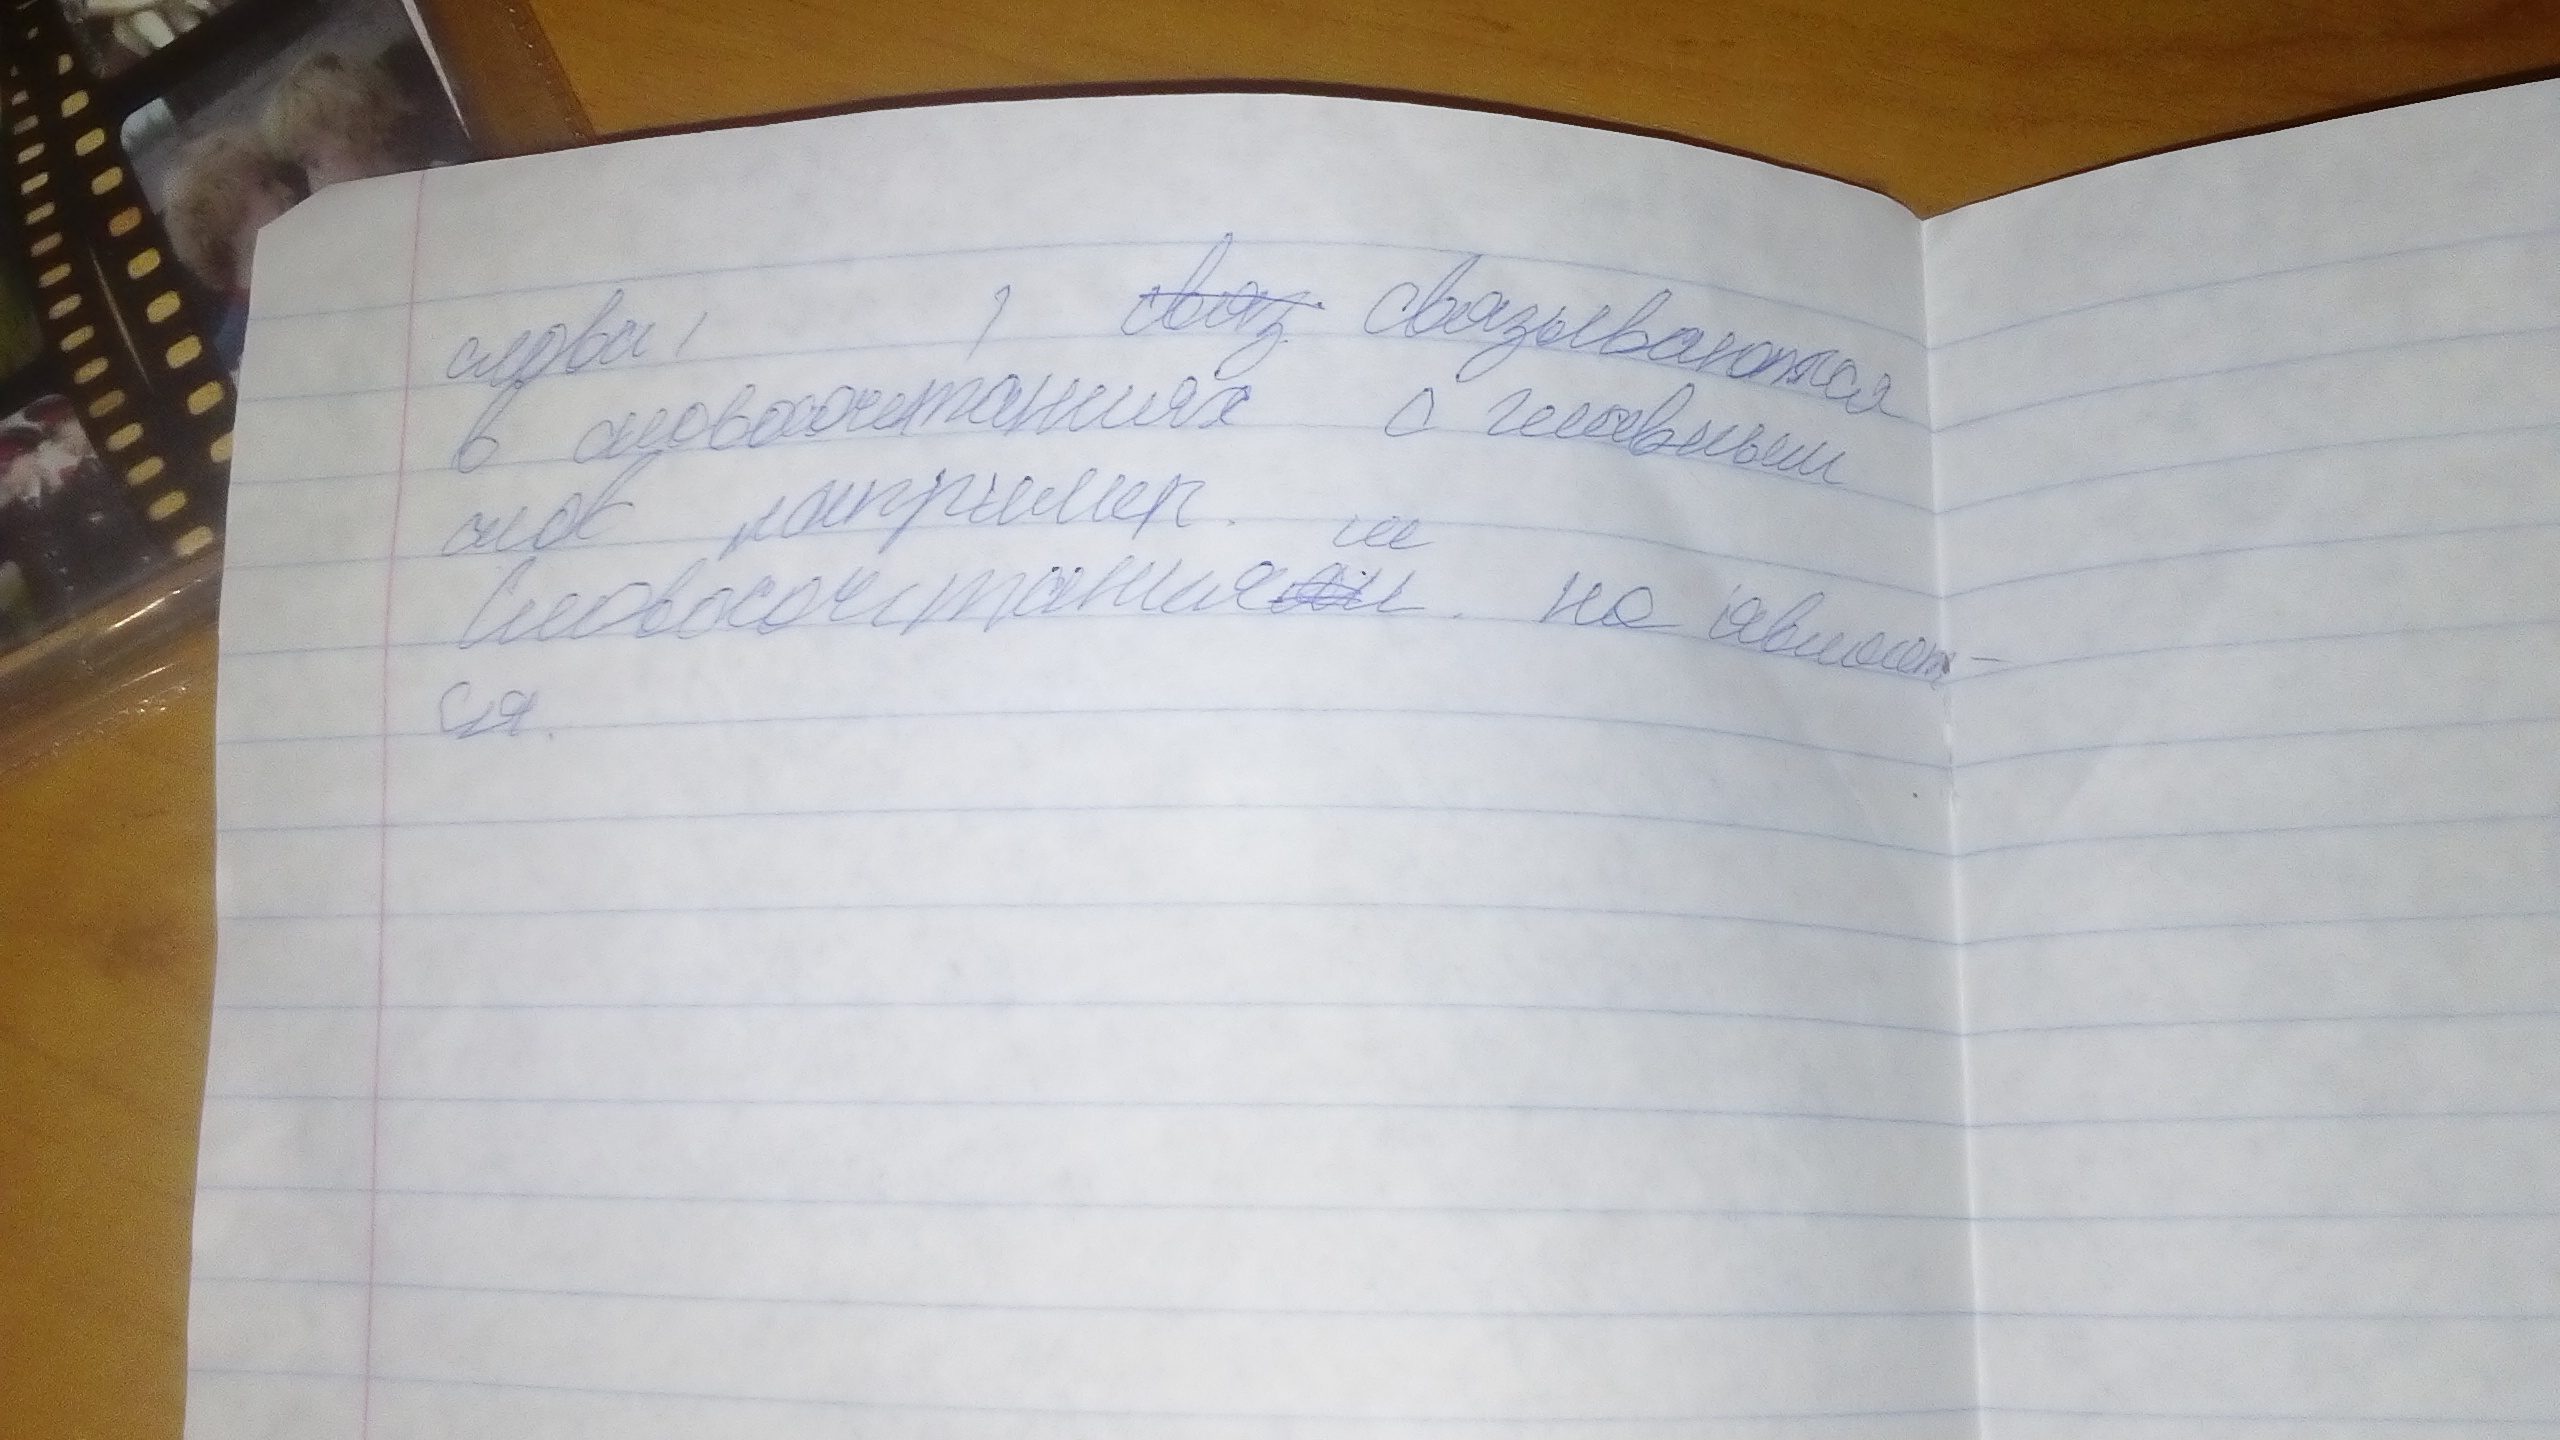 слова, , связ связываются
в словосочетаниях с главным
слов например.
Словосочетаниями. не являют-
ся.